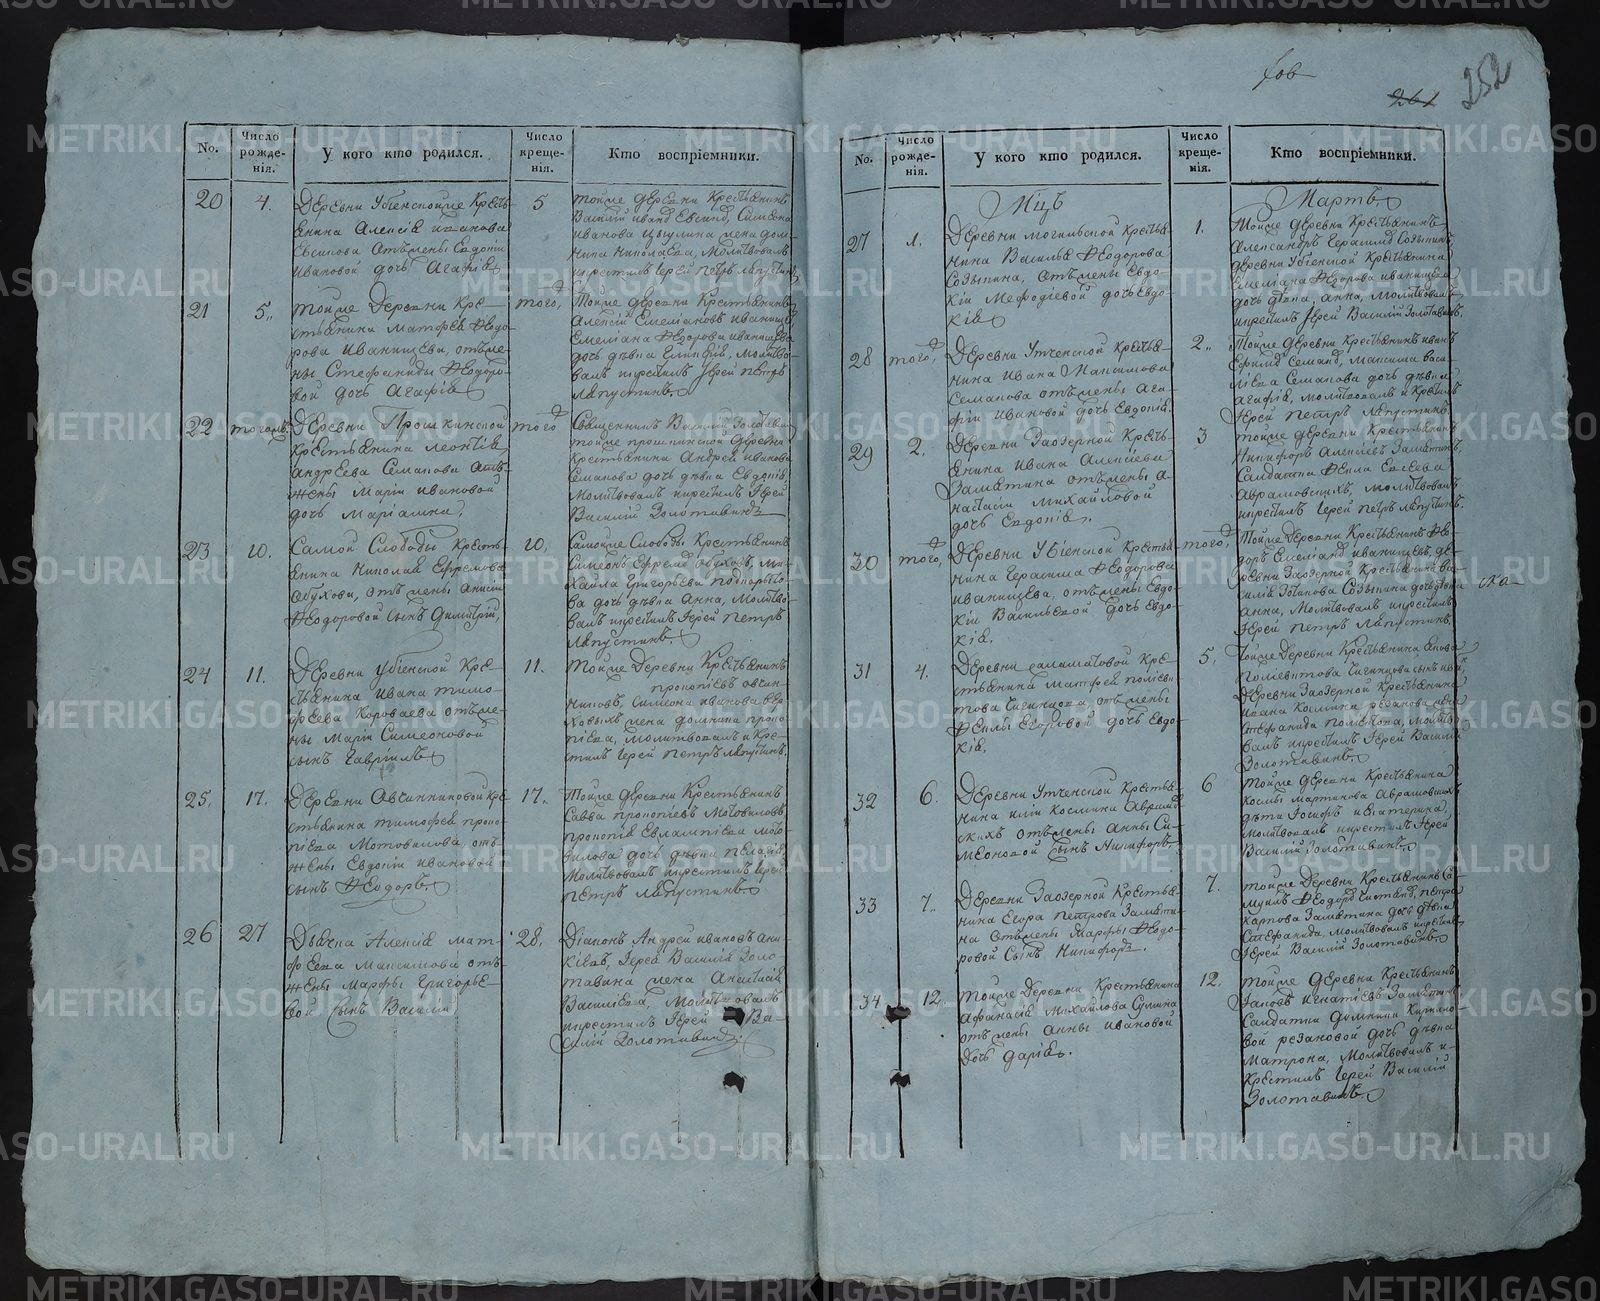 252
261
No.
Число рожде-нія.
У кого кто родился.
Число креще-нія.
Кто воспріемники.
20
4.
Деревни Убіенской Кресть-
янина Алексія Иванова
отъ жены Евдокіи
Ивановой дочь Агафія
5
тойже деревни Крестьянинъ
Василій Иванов
Иванова жена Дом-
ника Николаева, Молитвовалъ
и крестилъ Іерей Петръ Лапустинъ
21
5.
тойже Деревни Кре-
стьянина Матфея Ѳеодо-
рова Иванищева, отъ же-
ны Стефаниды Ѳеодоро-
вой дочь Агафія
того,
Тойже деревни Крестьянинъ
Алексій Емеліановъ Иванищев
Емеліана Ѳеодорова Иванищева
дочь девка, Молитво-
валъ и крестилъ Іерей Петръ
Лапустинъ.
22
тогожъ
Деревни Прошкинской
Крестьянина Леонтія
Андреева Семакова отъ
жены Маріи Ивановой
дочь Маріамна.
того
Священникъ Василій Золотавинъ
тойже прошкинской деревни
Крестьянина Андрея Иванова
Семакова дочь девка Евдокія
Молитвовалъ и крестилъ Іерей
Василій Золотавинъ
23
10.
Самой Слободы Кресть-
янина Николая Ефремова
Обухова, отъ жены Анисіи
Ѳеодоровой сынъ Димитрій,
10.
Самойже Слободы Крестьянинъ
Симеонъ Ефремов Обуховъ, Ми-
хаила Григорьева
дочь девка Анна, Молитво-
валъ и крестилъ Іерей Петръ
Лапустинъ.
24
11.
Деревни Убіенской Кре-
стьянина Ивана Тимо-
феева Короваева отъ же-
ны Маріи Симеоновой
сынъ Гавріилъ
11.
Тойже Деревни Крестьянинъ
Прокопіевъ Овчин-
никовъ, Симеона Иванова
жена Домника Проко-
піева, Молитвовалъ и Кре-
стилъ Іерей Петръ Лапустинъ.
25.
17.
Деревни Овчинниковой Кре-
стьянина Тимофея Проко-
піева Мотовилова, отъ
жены Евдокіи Ивановой
сынъ Ѳеодоръ.
17.
Тойже деревни Крестьянинъ
Савва Прокопіевъ Мотовиловъ
Прокопія Евлампіева Мото-
вилова дочь девка Пелагія,
Молитвовалъ и крестилъ Іерей
Петръ Лапустинъ.
26
27
Дьячка Алексія Мат-
феева Максимова отъ
жены Марфы Григорье-
вой Сынъ Василій
28.
Діаконъ Андрей Ивановъ Ани-
кіевъ, Іерея Василія Золо-
тавина жена Анастасія
Василіева, Молитвовалъ
и крестилъ Іерей Ва-
силій Золотавинъ.
No.
Число рожде-нія.
У кого кто родился.
Число креще-нія.
Кто воспріемники.
Мцъ
Мартъ
27
1.
Деревни Могильской Крестья-
нина Василья Ѳеодорова
Созыкина, отъ жены Евдо-
кіи Мефодіевой дочь Евдо-
кія
1.
Тойже деревни Крестьянинъ
Александръ Герасимов Созыкинъ,
деревни Убіенской Крестьянина
Емеліана Ѳеодорова Иванищева
дочь девка, Анна, Молитвовалъ
и крестилъ Іерей Василій Золотавинъ.
28
того,
Деревни Утченской Крестья-
нина Ивана Максимова
Семакова отъ жены Ага-
фіи Ивановой дочь Евдокія.
2.
Тойже Деревни Крестьянинъ Иванъ
Ефимов Семаков, Максима Васи-
ліева Семакова дочь девка
Агафія, Молитвовалъ и Крестилъ
Іерей Петръ Лапустинъ.
29
2.
Деревни Заозерной Кресть-
янина Ивана Алексіева
Замятина отъ жены А-
настасіи Михайловой
дочь Евдокія.
3
тойже деревни Крестьянинъ
Никифоръ Алексіевъ Замятинъ,
Солдатка Ѳекла Евсеева
Аврамовскихъ, Молитвовалъ
и крестилъ Іерей Петръ Лапустинъ.
30
того,
Деревни Убіенской Крестья-
нина Герасима Ѳеодорова
Иванищева, отъ жены Евдо-
кіи Васильевой дочь Евдо-
кія.
того,
Тойже Деревни Крестьянинъ Ѳе-
доръ Емеліанов Иванищевъ, де-
ревни Заозерной Крестьянина Ва-
силія Созыкина дочь девка
Анна, Молитвовалъ и крестилъ
Іерей Петръ Лапустинъ.
31
4.
Деревни Саламатовой Кре-
стьянина Матфея Полиевк-
това отъ жены
Ѳеклы Егоровой дочь Евдо-
кія.
5.
Тойже Деревни Крестьянина
Полиевктова сынъ
Деревни Заозерной Крестьянина
Ивана Космина Резанова жена
Стефанида, Молитво-
валъ и крестилъ Іерей Василій
Золотавинъ.
32
6.
Деревни Утченской Крестья-
нина Иліи Космина Аврамов-
скихъ отъ жены Анны Си-
меоновой Сынъ Никифоръ.
6
тойже Деревни Крестьянина
Космы Мартинова Аврамовскихъ
дети Іосифъ и Екатерина,
Молитвовалъ и крестилъ Іерей
Василій Золотавинъ.
33
7.
Деревни Заозерной Крестья-
нина Егора Петрова Замяти-
на отъ жены Марфы Ѳеодо-
ровой Сынъ Никифоръ.
7.
тойже Деревни Крестьянинъ Са-
муилъ Ѳеодоров, Петра
Карпова Замятина дочь девка
Стефанида, Молитвовалъ и крестилъ
Іерей Василій Золотавинъ.
34
12.
Тойже Деревни Крестьянина
Афанасія Михайлова Сулина
отъ жены Анны Ивановой
дочь Дарія.
12.
тойже Деревни Крестьянинъ
Іаковъ Игнатіевъ Замятинъ
Солдатки Домники Кирило-
вой Резановой дочь девка
Матрона, Молитвовалъ и
Крестилъ Іерей Василій
Золотавинъ.
METRIKI.GASO-URAL.RU